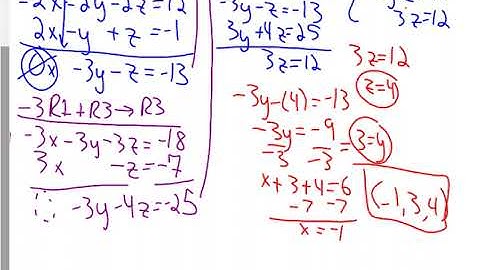 -2x-2y-2z=12
2x-y+z=-1
0x -3y-z=-13
-3R1+R3→R3
-3x-3y-3z=-18
3x -z=-7
-3y-4z=-25
-3y-z=-13
3y+4z=25
3z=12
-3y-(4)=-13
-3y=-9
-3 -3
3=y
x+3+4=6
-7 -7
x=-1
3z=12
3z=12
z=4
(-1,3,4)